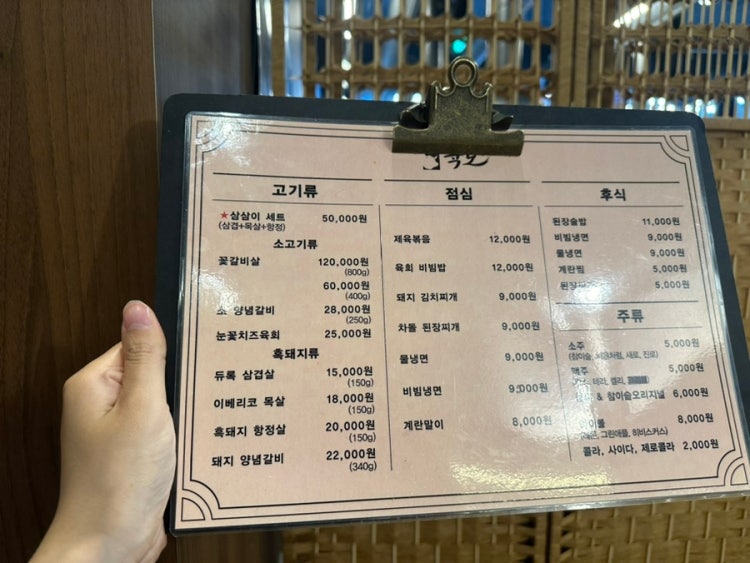 고기류
★삼삼이 세트 50,000원
(삼겹+목살+항정)
소고기류
꽃갈비살 120,000원
(800g)
60,000원
(400g)
소 양념갈비 28,000원
(250g)
눈꽃치즈육회 25,000원
흑돼지류
듀록 삼겹살 15,000원
(150g)
이베리코 목살 18,000원
(150g)
흑돼지 항정살 20,000원
(150g)
돼지 양념갈비 22,000원
(340g)
점심
제육볶음 12,000원
육회 비빔밥 12,000원
돼지 김치찌개 9,000원
차돌 된장찌개 9,000원
물냉면 9,000원
비빔냉면 9,000원
계란말이 8,000원
후식
된장술밥 11,000원
비빔냉면 9,000원
물냉면 9,000원
계란찜 5,000원
5,000원
주류
소주 5,000원
(참이슬, 처음처럼, 새로, 진로)
맥주 5,000원
테라, 켈리,
& 참이슬오리지널 6,000원
8,000원
그린애플, 히비스커스)
콜라, 사이다, 제로콜라 2,000원